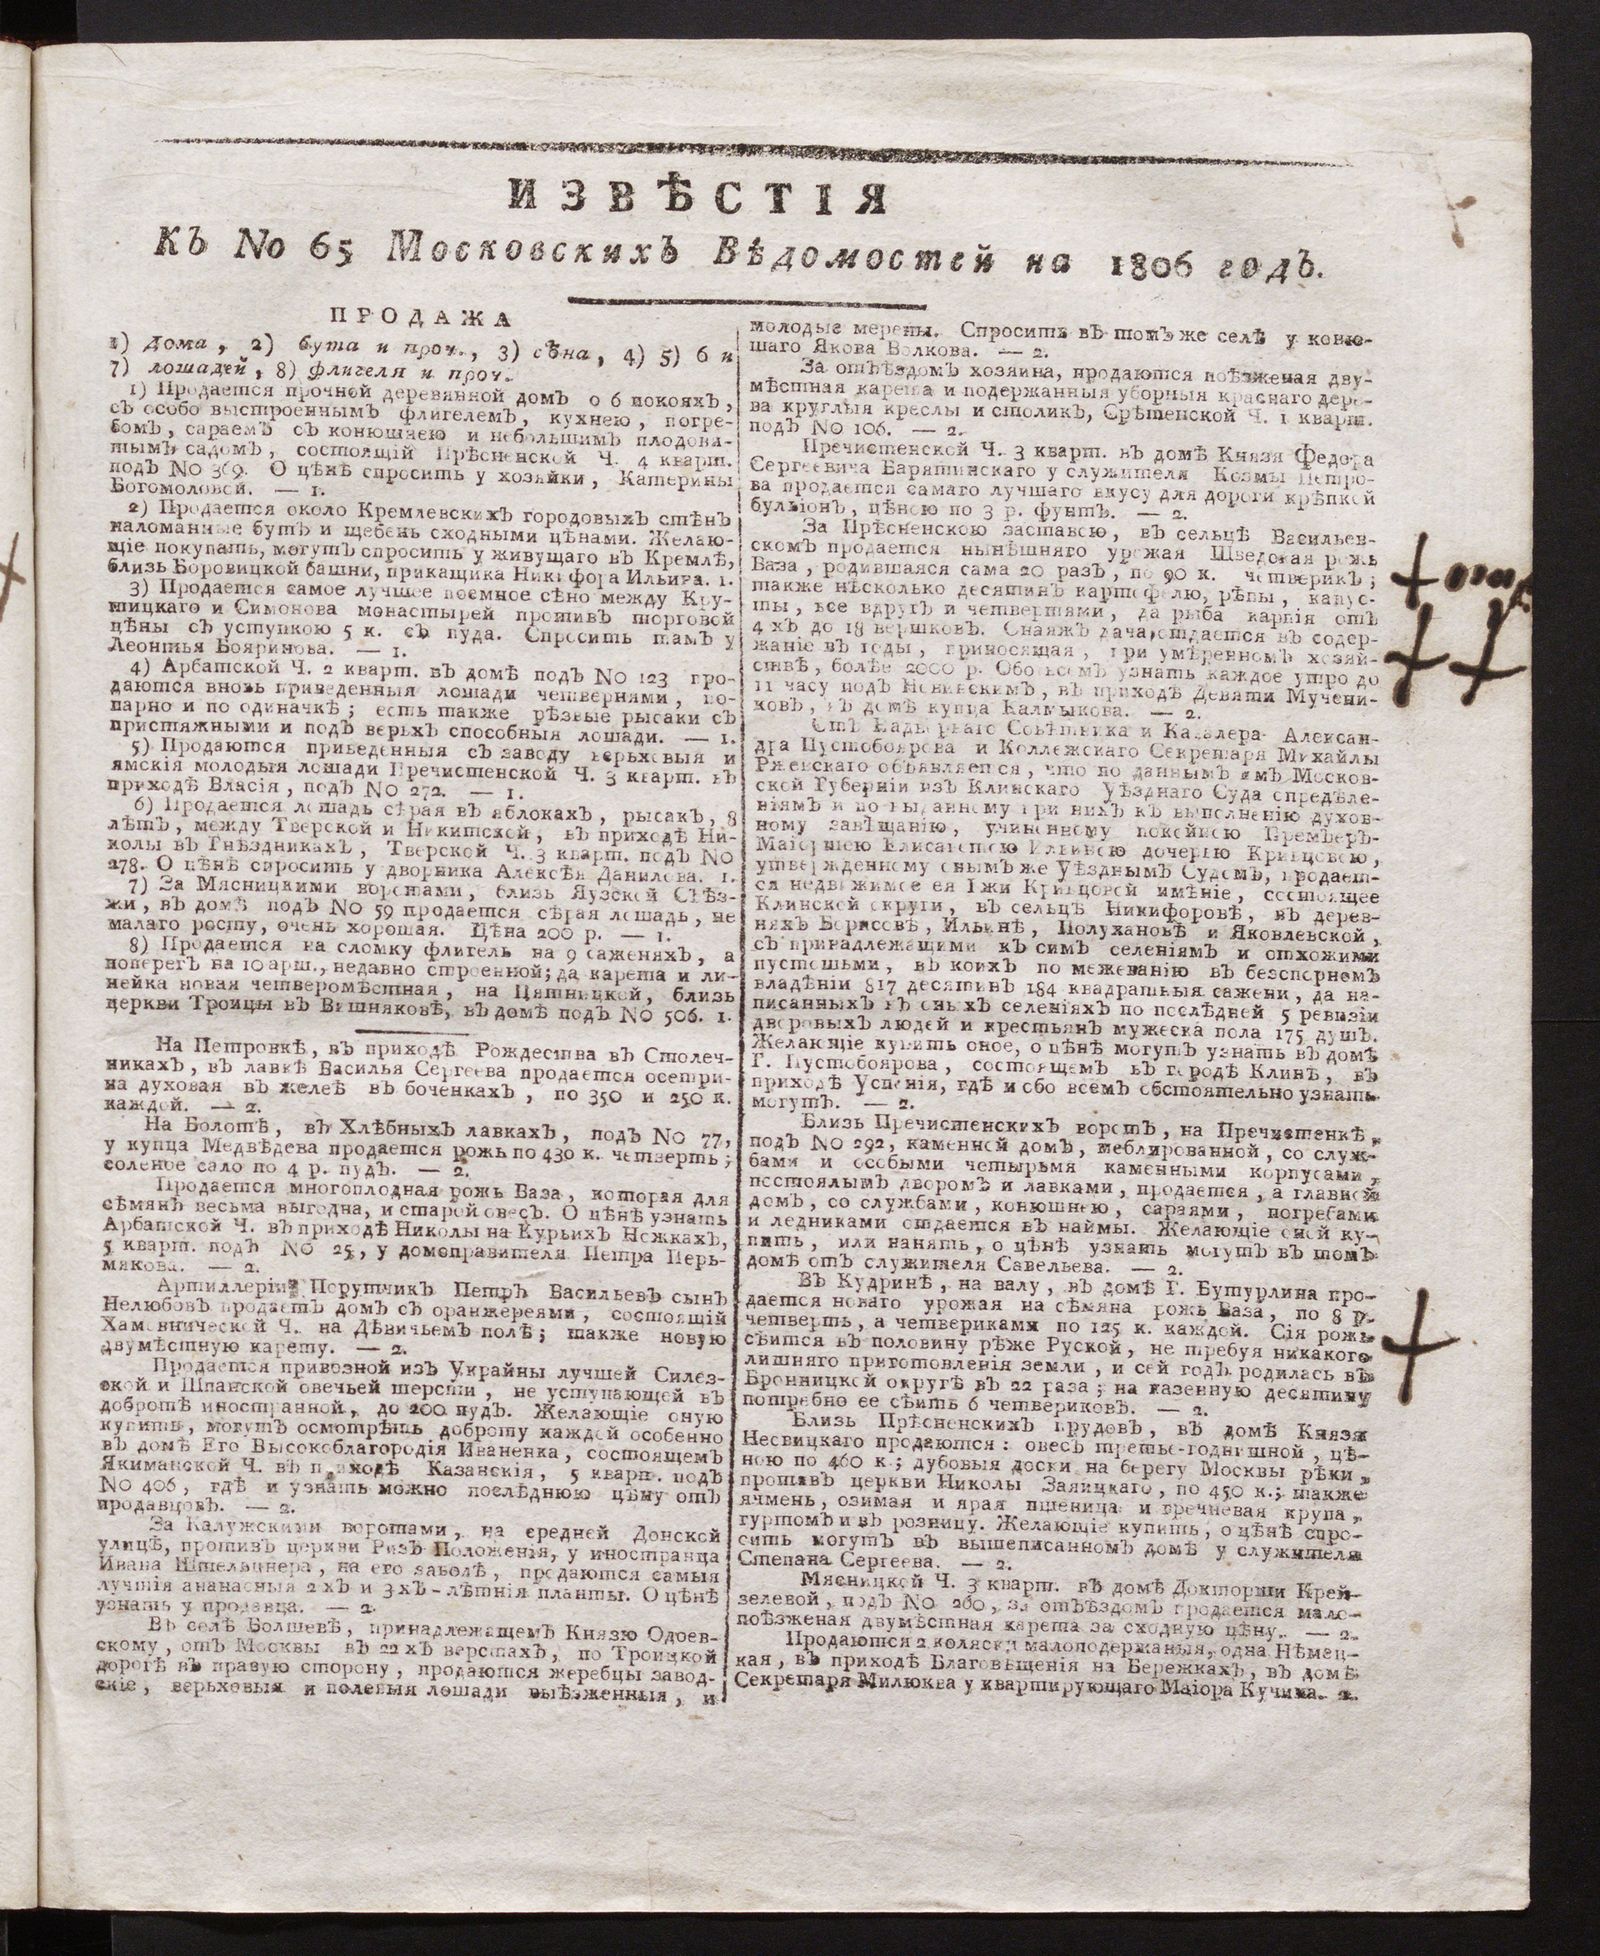 ИЗВѢСТІЯ
Къ No 65 Московскихъ Вѣдомостей на 1806 годъ.
ПРОДАЖА
1) дома, 2) бута и проч., 3) сѣна, 4) 5) 6 и
7) лошадей, 8) флигеля и проч.
1) Продается прочной деревянной домъ о 6 покояхъ,
съ особо выстроеннымъ флигелемъ, кухнею, погре-
бомъ, сараемъ съ конюшнею и небольшимъ плодови-
тымъ садомъ, состоящій Прѣсненской Ч. 4 кварт.
подъ No 369. О цѣнѣ спросить у хозяйки, Катерины
Богомоловой. — 1.
2) Продается около Кремлевскихъ городовыхъ стѣнъ
наломанные бутъ и щебень сходными цѣнами. Желаю-
щіе покупать, могутъ спросить у живущаго въ Кремлѣ,
близь Боровицкой башни, прикащика Никифора Ильина. 1.
3) Продается самое лучшее поемное сѣно между Кру-
тицкаго и Симонова монастырей противъ торговой
цѣны съ уступкою 5 к. съ пуда. Спросить тамъ у
Леонтья Бояринова. — 1.
4) Арбатской Ч. 2 кварт. въ домѣ подъ No 123 про-
даются вновь приведенныя лошади четвернями, по-
парно и по одиначкѣ; есть также рѣзвые рысаки съ
пристяжными и подъ верьхъ способныя лошади. — 1.
5) Продаются приведенныя съ заводу верьховыя и
ямскія молодыя лошади Пречистенской Ч. 3 кварт. въ
приходѣ Власія, подъ No 272. — 1.
6) Продается лошадь сѣрая въ яблокахъ, рысакъ, 8
лѣтъ, между Тверской и Никитской, въ приходѣ Ни-
колы въ Гнѣздникахъ, Тверской Ч. 3 кварт. подъ No
278. О цѣнѣ спросить у дворника Алексѣя Данилова. 1.
7) За Мясницкими воротами, близь Яузской Съѣз-
жи, въ домѣ подъ No 59 продается сѣрая лошадь, не
малаго росту, очень хорошая. Цѣна 200 р. — 1.
8) Продается на сломку флигель на 9 саженяхъ, а
поперегъ на 10 арш., недавно строенной; да карета и ли-
нейка новая четверомѣстная, на Пятницкой, близь
церкви Троицы въ Вишняковѣ, въ домѣ подъ No 506. 1.
На Петровкѣ, въ приходѣ Рождества въ Столеч-
никахъ, въ лавкѣ Василья Сергеева продается осетри-
на духовая въ желеѣ въ боченкахъ, по 350 и 250 к.
каждой. — 2.
На Болотѣ, въ Хлѣбныхъ лавкахъ, подъ No 77,
у купца Медвѣдева продается рожь по 430 к. четверть;
соленое сало по 4 р. пудъ. — 2.
Продается многоплодная рожь Ваза, которая для
сѣмянъ весьма выгодна, и старой овесъ. О цѣнѣ узнать
Арбатской Ч. въ приходѣ Николы на Курьихъ Ножкахъ,
5 кварт. подъ No 25, у домоправителя Петра Перь-
мякова. — 2.
Артиллеріи Порутчикъ Петръ Васильевъ сынъ
Нелюбовъ продаетъ домъ съ оранжереями, состоящій
Хамовнической Ч. на Дѣвичьемъ полѣ; также новую
двумѣстную карету. — 2.
Продается привозной изъ Украйны лучшей Силез-
ской и Шпанской овечьей шерсти, не уступающей въ
добротѣ иностранной, до 200 пудъ. Желающіе оную
купить, могутъ осмотрѣть доброту каждой особенно
въ домѣ Его Высокоблагородія Иваненка, состоящемъ
Якиманской Ч. въ приходѣ Казанскія, 5 кварт. подъ
No 406, гдѣ и узнать можно послѣднюю цѣну отъ
продавцовъ. — 2.
За Калужскими воротами, на средней Донской
улицѣ, противъ церкви Ризъ Положенія, у иностранца
Ивана Штельцнера, на его заводѣ, продаются самыя
лучшія ананасныя 2хъ и 3хъ-лѣтнія планты. О цѣнѣ
узнать у продавца. — 2.
Въ селѣ Болшевѣ, принадлежащемъ Князю Одоев-
скому, отъ Москвы въ 22хъ верстахъ, по Троицкой
дорогѣ въ правую сторону, продаются жеребцы завод-
скіе, верьховыя и полевыя лошади выѣзженныя, и
молодые мерены. Спросить въ томъ же селѣ у коню-
шаго Якова Волкова. — 2.
За отъѣздомъ хозяина, продаются поѣзженая дву-
мѣстная карета и подержанныя уборныя краснаго дере-
ва круглыя креслы и столикъ, Срѣтенской Ч. 1 кварт.
подъ No 106. — 2.
Пречистенской Ч. 3 кварт. въ домѣ Князя Федора
Сергеевича Барятинскаго у служителя Козмы Петро-
ва продается самаго лучшаго вкусу для дороги крѣпкой
бульіонъ, цѣною по 3 р. фунтъ. — 2.
За Прѣсненскою заставою, въ сельцѣ Васильев-
скомъ продается нынѣшняго урожая Шведская рожь
Ваза, родившаяся сама 20 разъ, по 90 к. четверикъ;
также нѣсколько десятинъ картофелю, рѣпы, капус-
ты, все вдругъ и четвертями, да рыба карпія отъ
4хъ до 18 вершковъ. Онаяжъ дача отдается въ содер-
жаніе въ годы, приносящая, при умѣренномъ хозяй-
ствѣ, болѣе 2000 р. Обо всемъ узнать каждое утро до
11 часу подъ Новинскимъ, въ приходѣ Девяти Мучени-
ковъ, въ домѣ купца Калмыкова. — 2.
Отъ Надворнаго Совѣтника и Кавалера Алексан-
дра Пустобоярова и Коллежскаго Секретаря Михайлы
Ржевскаго объявляется, что по даннымъ имъ Москов-
ской Губерніи изъ Клинскаго Уѣзднаго Суда опредѣле-
ніямъ и по выданному при нихъ къ выполненію духов-
ному завѣщанію, учиненному покойною Премьеръ-
Маіоршею Елисаветою Ильиною дочерью Кривцовою,
утвержденному онымъ же Уѣзднымъ Судомъ, продает-
ся недвижимое ея Гжи Кривцовой имѣніе, состоящее
Клинской округи, въ сельцѣ Никифоровѣ, въ дерев-
няхъ Борисовѣ, Ильинѣ, Полухановѣ и Яковлевской,
съ принадлежащими къ симъ селеніямъ и отхожими
пустошьми, въ коихъ по межеванію въ безспорномъ
владѣніи 817 десятинъ 184 квадратныя сажени, да на-
писанныхъ въ оныхъ селеніяхъ по послѣдней 5 ревизіи
дворовыхъ людей и крестьянъ мужеска пола 175 душъ.
Желающіе купить оное, о цѣнѣ могутъ узнать въ домѣ
Г. Пустобоярова, состоящемъ въ городѣ Клинѣ, въ
приходѣ Успенія, гдѣ и обо всемъ обстоятельно узнать
могутъ. — 2.
Близь Пречистенскихъ воротъ, на Пречистенкѣ,
подъ No 292, каменной домъ, меблированной, со служ-
бами и особыми четырьмя каменными корпусами,
постоялымъ дворомъ и лавками, продается, а главной
домъ, со службами, конюшнею, сараями, погребами
и ледниками отдается въ наймы. Желающіе оной ку-
пить, или нанять, о цѣнѣ узнать могутъ въ томъ
домѣ отъ служителя Савельева. — 2.
Въ Кудринѣ, на валу, въ домѣ Г. Бутурлина про-
дается новаго урожая на сѣмяна рожь Ваза, по 8 р.
четверть, а четвериками по 125 к. каждой. Сія рожь
сѣется въ половину рѣже Руской, не требуя никакого
лишняго приготовленія земли, и сей годъ родилась въ
Бронницкой округѣ въ 22 раза; на казенную десятину
потребно ее сѣить 6 четвериковъ. — 2.
Близь Прѣсненскихъ прудовъ, въ домѣ Князя
Несвицкаго продаются: овесъ третье-годнишной, цѣ-
ною по 460 к.; дубовыя доски на берегу Москвы рѣки,
противъ церкви Николы Заяицкаго, по 450 к.; также
ячмень, озимая и ярая пшеница и гречневая крупа,
гуртомъ и въ розницу. Желающіе купить, о цѣнѣ спро-
сить могутъ въ вышеписанномъ домѣ у служителя
Степана Сергеева. — 2.
Мясницкой Ч. 3 кварт. въ домѣ Докторши Крей-
зелевой, подъ No 260, за отъѣздомъ продается мало-
поѣзженая двумѣстная карета за сходную цѣну. — 2.
Продаются 2 коляски малоподержаныя, одна Нѣмец-
кая, въ приходѣ Благовѣщенія на Бережкахъ, въ домѣ
Секретаря Милюква у квартирующаго Маіора Кучина. 2.